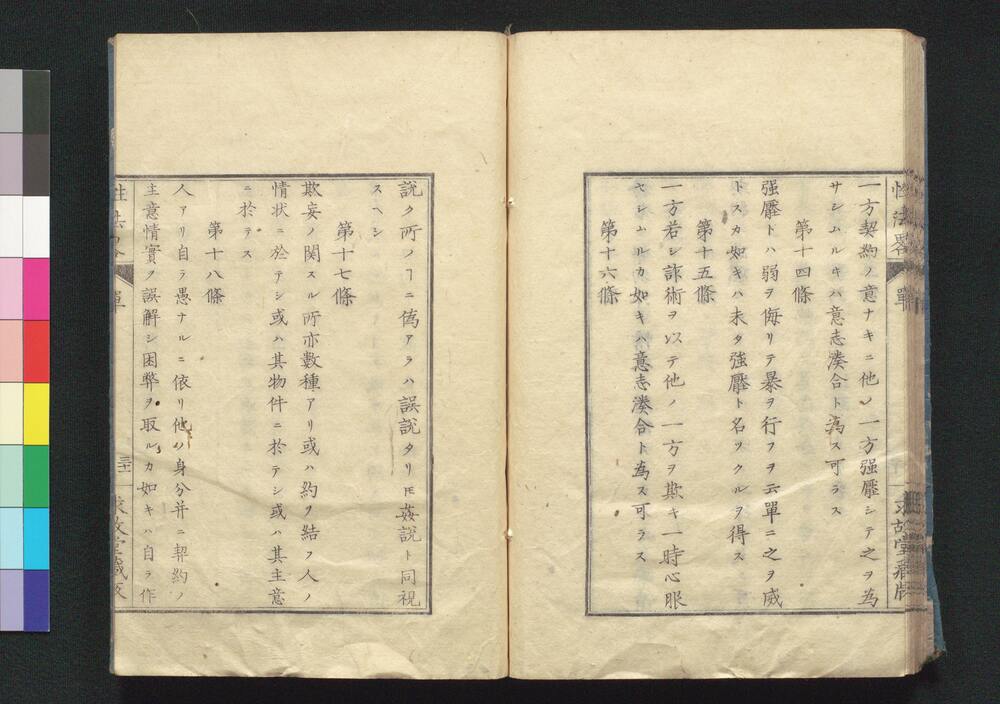 性法畧
單
求故堂藏版
一方契約ノ意ナキニ他ノ一方强壓シテ之ヲ為
サシムルキハ意志湊合ト為ス可ラス
第十四條
强壓トハ弱ヲ侮リテ暴ヲ行フヲ云單ニ之ヲ威
トスカ如キハ未タ强壓ト名ツクルヲ得ス
第十五條
一方若シ詐術ヲ以テ他ノ一方ヲ欺キ一時心服
セシムルカ如キハ意志湊合ト為ス可ラス
第十六條
說ク所ノヿニ偽アラハ誤說タリ𪜈姦說ト同視
スヘシ
第十七條
欺妄ノ関スル所亦數種アリ或ハ約ヲ結フ人ノ
情状ニ於テシ或ハ其物件ニ於テシ或ハ其主意
ニ於テス
第十八條
人アリ自ラ愚ナルニ依リ他ノ身分并ニ契約ノ
主意情實ヲ誤解シ困弊ヲ取ルカ如キハ自ラ作
性法畧
單
求故堂藏版